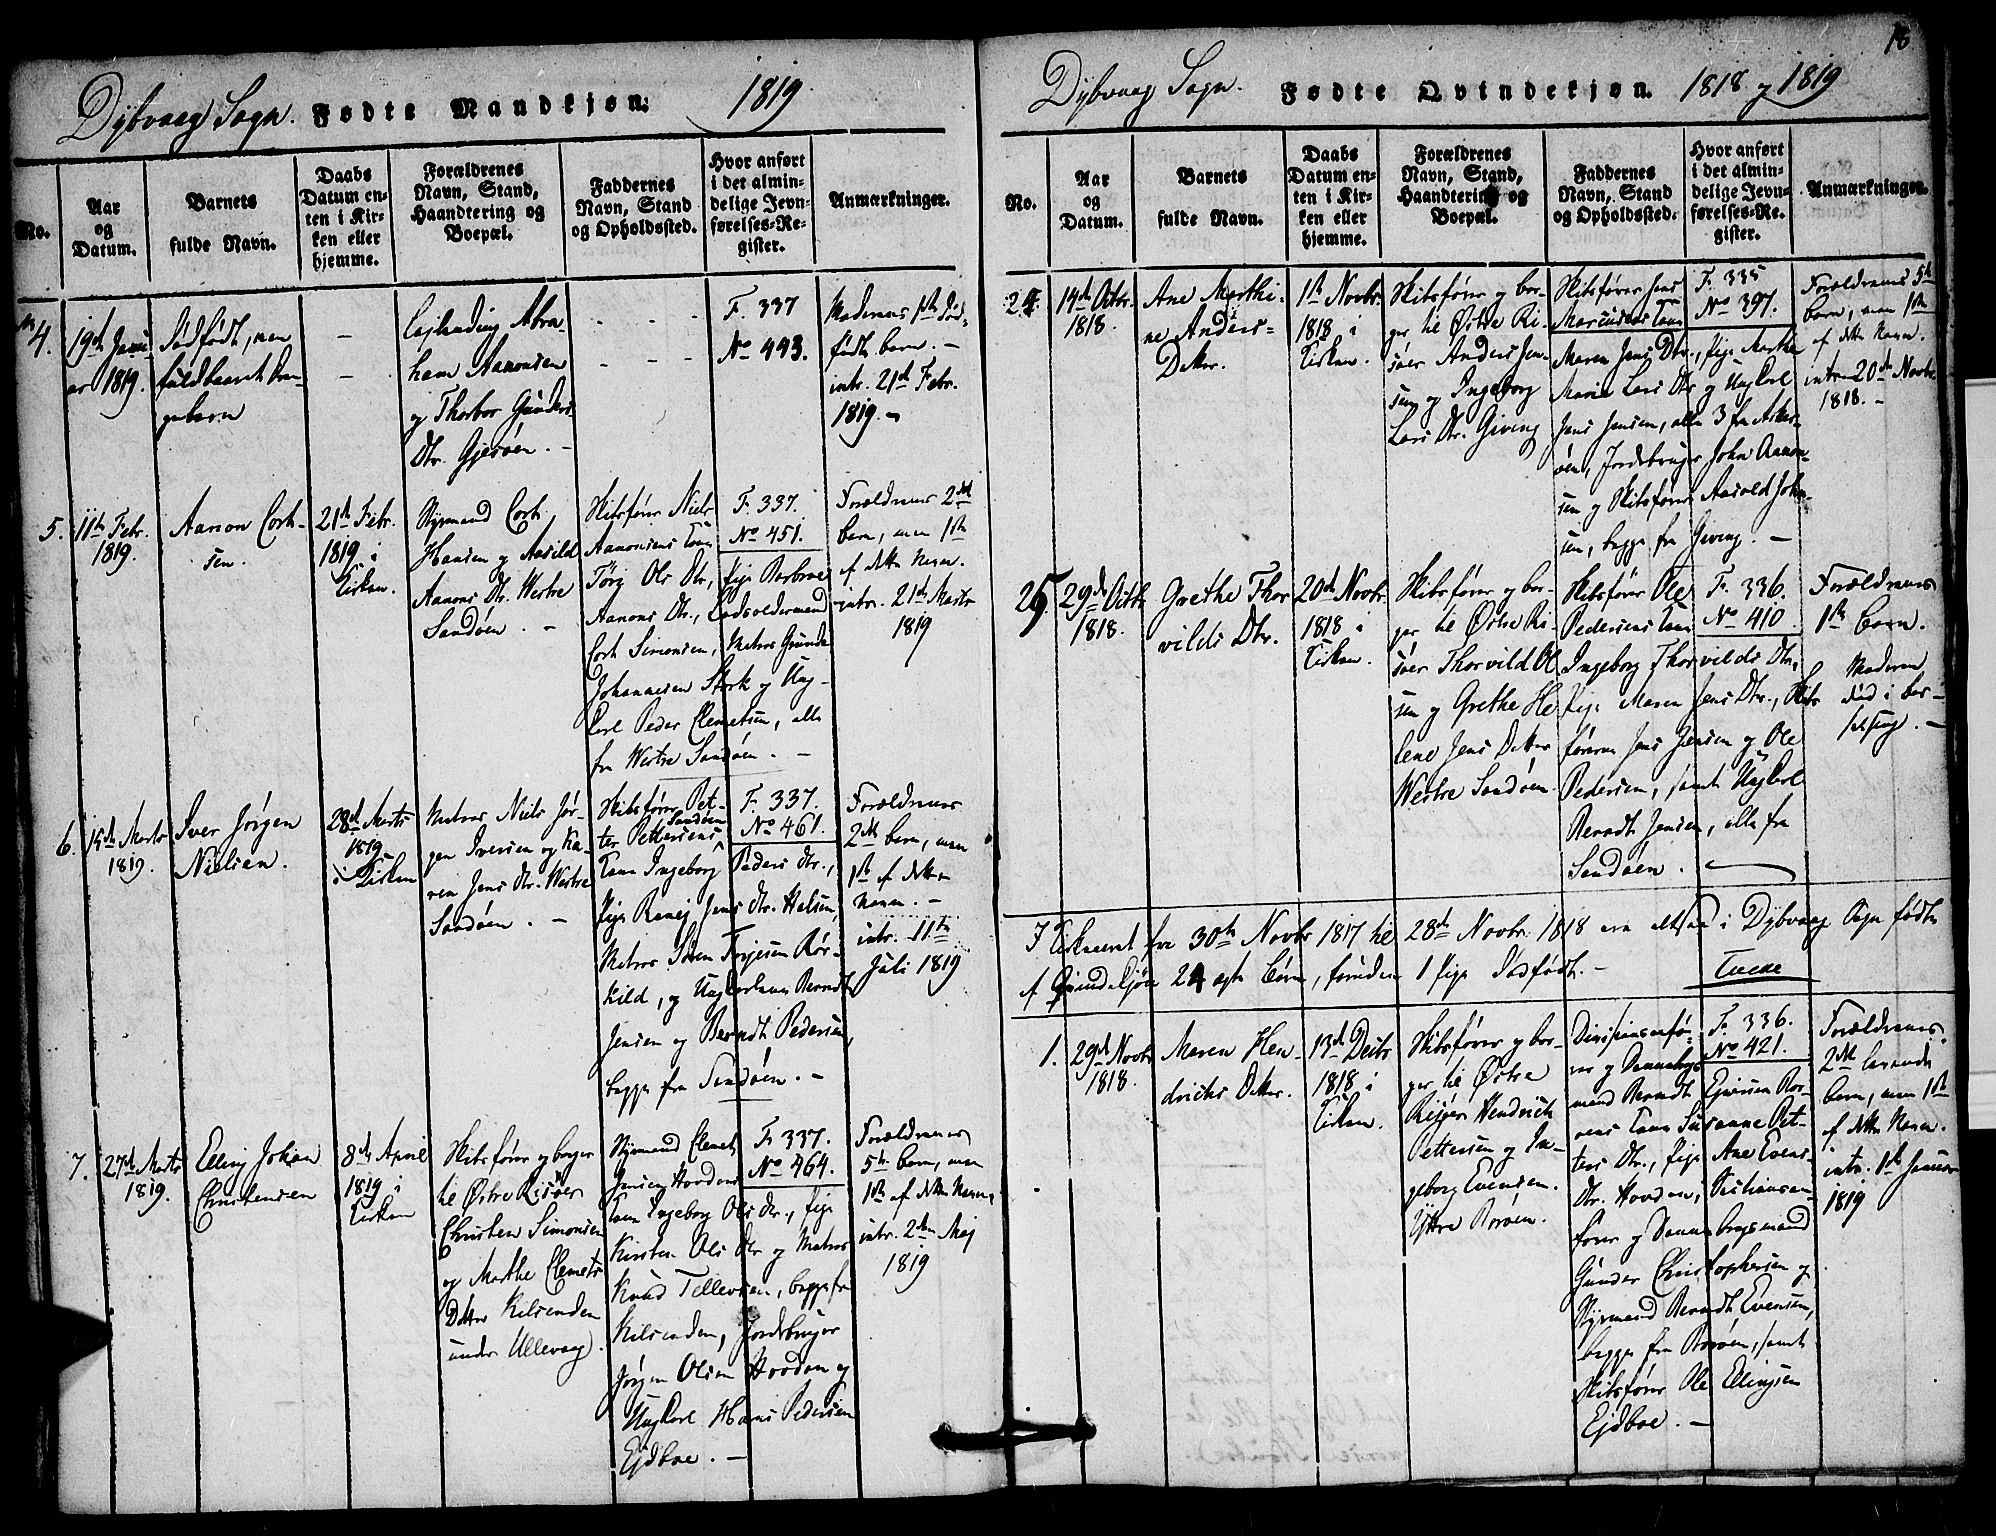 Dybvaag Sogn. Fødte Mandkjøn: 1819
No.
Aar
og
Datum.
Barnets
fulde Navn.
Daabs
Datum en-
ten i Kir-
ken eller
hjemme.
Forældrenes
Navn, Stand,
Haandtering og
Boepæl.
Faddernes
Navn, Stand
og Opholdssted.
Hvor anført
i det almin-
delige Jevn-
førelses-Re-
gister.
Anmærkninger.
4.
19de Janu-
ar 1819.
Dødfødt, men
fuldbaaret Dren-
gebarn
Abra-
ham Aanonsen
og Thorbor Gunders
Dtr. Gjesøen. -
F. 337
No 443.
Moderens 1ste død-
født barn. -
intr. 21de Febr.
1819. -
5.
11te Febr.
1819.
Aanon Cort-
sen.
21de Febr.
1819 i
Kirken.
Styrmand Cort
Hansen og Aasild
Aanons Dtr. Westre
Sandøen. -
Skibsfører Niels
Aanonsens Kone
Torg Ols Dtr., Pige Barbroe
Aanons Dtr., Lodsoldermand
Cort Simonsen, Matros Gunder
Johannesen Stærk og Ung-
Karl Peder Clemetsen, alle
fra Westre Sandøen. -
F. 337.
No 451.
Forældrenes 2det
barn, men 1ste
af dette Navn.
intr. 21de Marts
1819
6.
15de Marts
1819.
Iver Jørgen
Nielsen.
28de Marts
1819
i Kirken
Matros Niels Jør-
gen Iversen og Ka-
ren Jens Dtr. Westre
Sandøen. -
Skibsfører Pet-
ter Pettersens Sandøen
Kone Ingeborg Peders Dtr.,
Pige Ranej Jens Dtr. Halsen,
Matros Søren Terjesen Rør-
kild, og Ungkarlene Berndt
Jensen og Berndt Pedersen,
begge fra Sandøen. -
F. 337.
No 461.
Forældrenes
2det barn, men
1ste af dette
Navn. -
intr. 11te
Juli 1819
7.
27de Marts
1819.
Elling Johan
Christensen
8de April
1819 i
Kirken
Skibsfører og borger
til Østre Risøer
Christen Simonsen
og Marthe Clemets
Datter Kilsenden
under Ullevaag.
Styrmand Clemet
Jensen Hovdens
Kone Ingeborg Ols Dtr., Pige
Kirsten Ols Dtr og Matros
Knud Tellevsen, begge fra
Kilsenden, Jordbruger
Jørgen Olsen Hovden og
Ungkarl Hans Pedersen
Ejdboe. -
F. 337.
No 464.
Forældrenes
5te barn, men
1ste af dette Navn,
intr. 2den Maj
1819
18
Dybvaag Sogn. Fødte Qvindekjøn. 1818 og 1819
No.
Aar
og
Datum.
Barnets
fulde Navn.
Daabs
Datum en-
ten i Kir-
ken eller
hjemme.
Forældrenes
Navn, Stand,
Haandtering og
Boepæl.
Faddernes
Navn, Stand
og Opholdssted.
Hvor anført
i det almin-
delige Jevn-
førelses-Re-
gister.
Anmærkninger.
24.
14de Octbr.
1818.
Ane Marthi-
ne Anders-
Datter.
1ste Novbr.
1818 i
Kirken.
Skibsfører og bor-
ger til Østre Ri-
søer Anders Jen-
sen og Ingeborg
Lars Dtr. Giving
Skibsfører Jens
Marcussens Kone
Maren Jens Dtr., Pige Marthe
Maria Lars Dtr og Ungkarl
Jens Jensen, alle 3 fra Asker-
øen, Jordbruger John Aanon-
sen og Skibsfører Aasold John-
sen, begge fra Giving. -
F. 335
No 397.
Forældrenes 5te
barn, men 1ste
af dette Navn.
intr. 20de Novbr
1818. -
25.
29de Octbr
1818.
Grethe Thor
vilds Dtr.
20de Novbr.
1818 i
Kirken.
Skibsfører og bor-
ger til Østre Ri-
søer Thorvild Ol
sen og Grethe He
lene Jens Datter
Westre Sandøen.
Skibsfører Ole
Pedersens Kone
Ingeborg Thorvilds Dtr,
Pige Maren Jens Dtr., Skibs
førerne Jens Jensen og Ole
Pedersen, samt Ungkarl
Berndt Jensen, alle fra
Sandøen.
F. 336.
No 410.
Forældrenes
1ste barn.
Moderen
død i bar-
selseng. -
I Kirkeaaret fra 30te Novbr 1817 til 28de Novbr. 1818 ere altsaa i Dybvaag Sogn fødte
af Qvindekjøn 24 ægte Børn, foruden 1 Pige dødfødt. -
1.
29de Novbr
1818.
Maren Hen-
drichs Datter.
13de Decbr
1818 i
Kirken.
Skibsfører og bor-
ger til Østre
Risøer Hendrich
Pettersen og In-
geborg Evensen.
Yttre Borøen.
Divisionsfø-
rer og Dannebrogs
mand Berndt Ejvensen Bor-
øens Kone Susanne Pet-
ters Dtr., Pige Ane Evens-
Dtr. Hovden, Divisions-
fører og Dannebrogsmand
Gunder Christophersen og
Styrmand Berndt Evensen,
begge fra Borøen, samt
Skibsfører Ole Ellingsen
Ejdboe. -
F. 336.
No 421.
Forældrenes
2det levende
barn, men 1ste
af dette Navn.
intr. 1ste Januar
1819